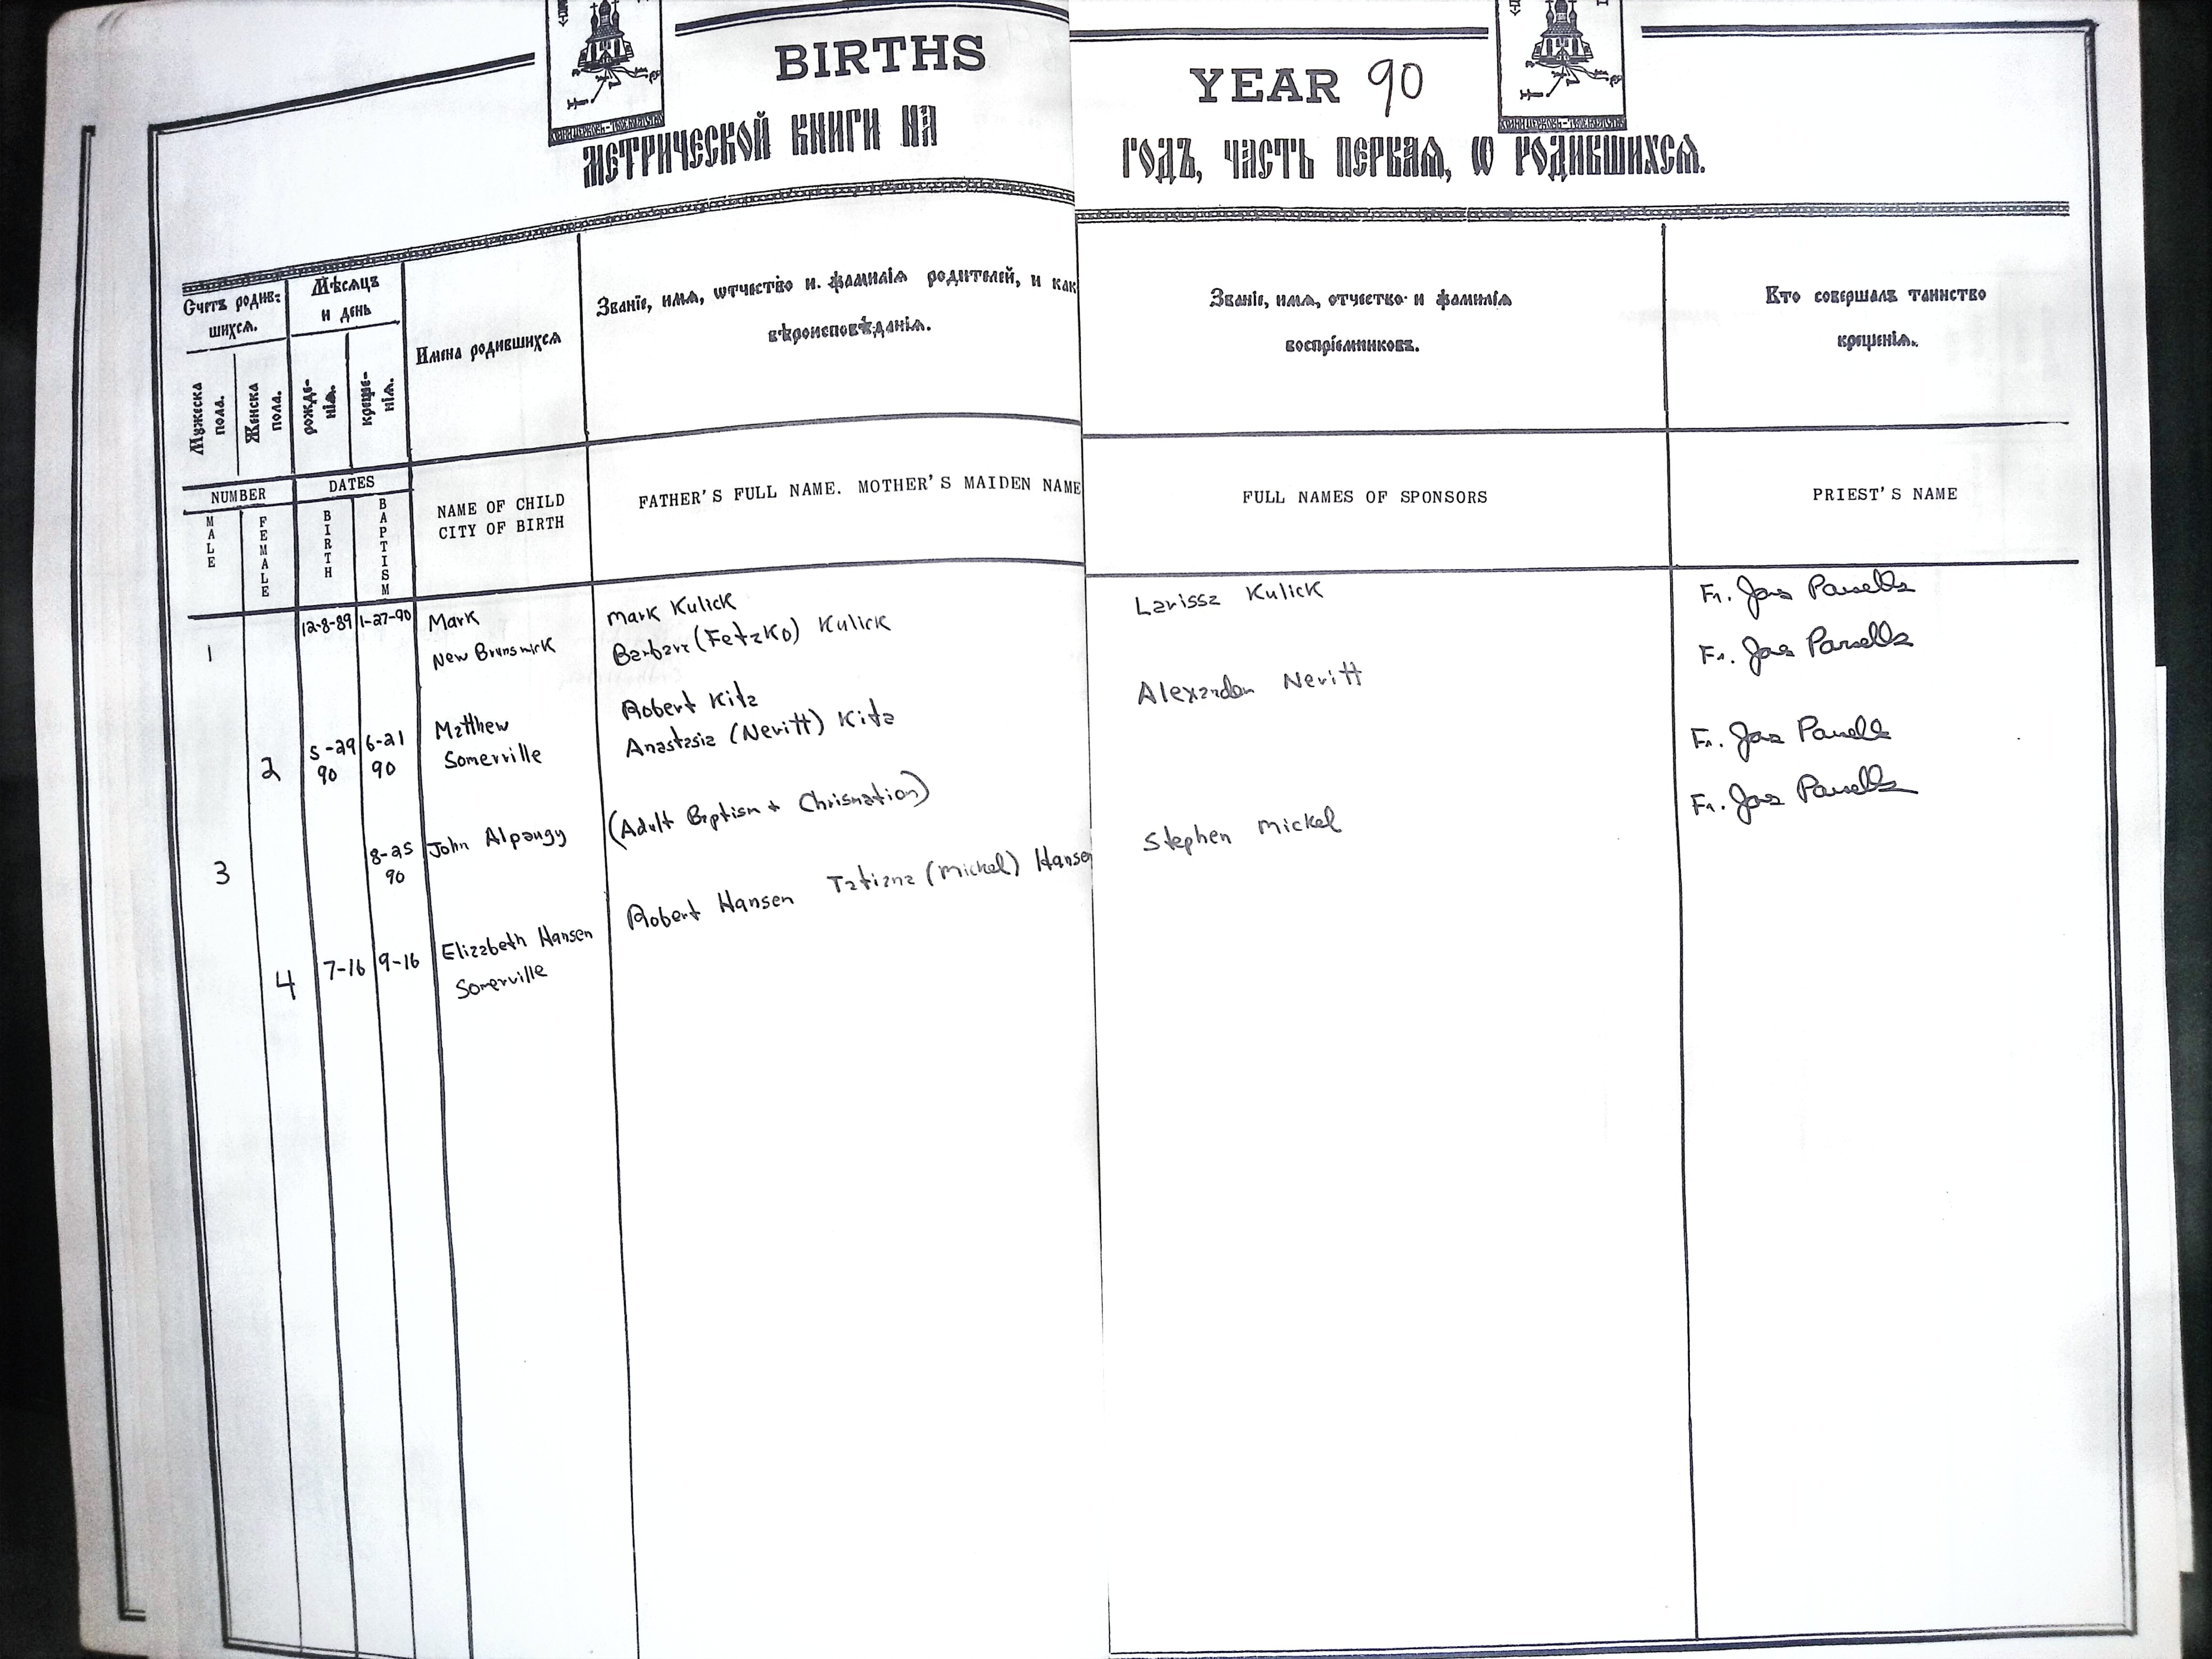 BIRTHS
YEAR 90
МЕТРИЧЕСКОЙ КНИГИ НА
ГОДЪ, ЧАСТЬ ПЕРВАѦ, Ѡ РОДИВШИХСѦ.
Счетъ родив=
шихсѧ.
Мѣсѧцъ
и день
Имена родившихсѧ
Званіе, имѧ, ѡтчество и. фамиліѧ родителей, и как
вѣроисповѣданіѧ.
Званіе, имѧ, отчество и фамиліѧ
воспріемниковъ.
Кто совершалъ таинство
крещеніѧ.
Мужеска
пола.
Женска
пола.
рожде-
ніѧ.
креще-
ніѧ.
NUMBER
DATES
MALE
FEMALE
BIRTH
BAPTISM
NAME OF CHILD
CITY OF BIRTH
FATHER'S FULL NAME. MOTHER'S MAIDEN NAME
FULL NAMES OF SPONSORS
PRIEST'S NAME
1
12-8-89
1-27-90
Mark
New Brunswick
Mark Kulick
Barbara (Fetzko) Kulick
Larissa Kulick
Fr. Jas Parsells
2
5-29
90
6-21
90
Matthew
Somerville
Robert Kita
Anastasia (Nevitt) Kita
Alexander Nevitt
Fr. Jas Parsells
3
8-25
90
John Alpaugy
(Adult Baptism + Chrismation)
Fr. Jas Parsells
4
7-16
9-16
Elizabeth Hansen
Somerville
Robert Hansen Tatiana (Mickel) Hansen
Stephen Mickel
Fr. Jas Parsells